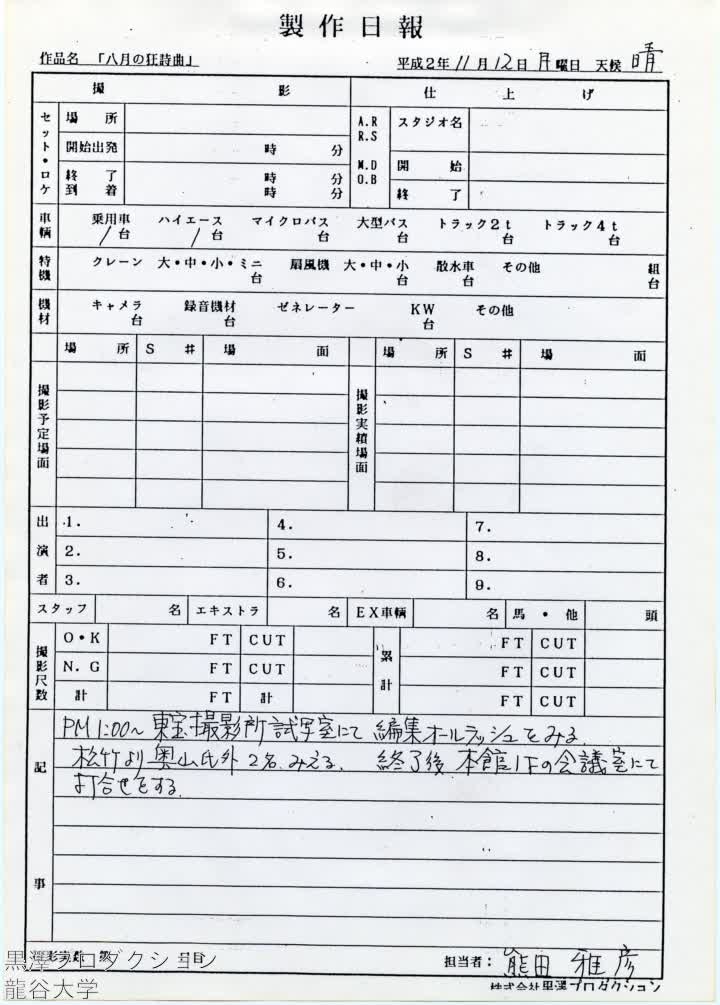 製作日報
作品名 「八月の狂詩曲」 平成2年11月12日月曜日 天候 晴
撮 影 仕 上 げ
セット・ロケ 場所 A.R R.S M.D O.B スタジオ名
開始出発 時 分 開始
終了 時 分
到着 時 分 終了
車輌 乗用車 ハイエース マイクロバス 大型バス トラック2t トラック4t
1台 1台 台 台 台 台
特機 クレーン 大・中・小・ミニ 扇風機 大・中・小 散水車 その他 組
台 台 台 台
機材 キャメラ 録音機材 ゼネレーター KW その他
台 台 台
場所 S# 場面 場所 S# 場面
撮影予定場面 撮影実績場面
出演者 1. 4. 7.
2. 5. 8.
3. 6. 9.
スタッフ 名 エキストラ 名 EX車輌 名 馬・他 頭
撮影尺数 O・K FT CUT 累計 FT CUT
N.G FT CUT FT CUT
計 FT 計 FT CUT
記事
PM1:00~ 東宝撮影所試写室にて 編集オールラッシュをみる。
松竹より奥山氏外2名みえる。 終了後 本館1Fの会議室にて
打合せをする。
担当者: 熊田雅彦
株式会社黒澤プロダクション
黒澤プロダクション
龍谷大学